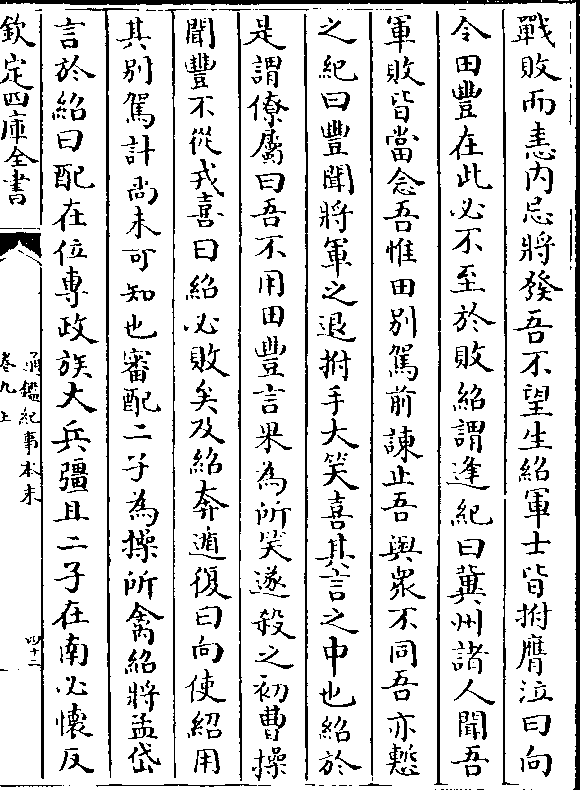 戰敗而恚內忌將發吾不望生紹軍士皆拊膺泣曰向
令田豐在此必不至於敗紹謂逢紀曰冀州諸人聞吾
軍敗皆當念吾惟田别駕前諫止吾與衆不同吾亦慙
之紀曰豐聞將軍之退拊手大笑喜其言之中也紹於
是謂僚屬曰吾不用田豐言果為所笑遂殺之初曹操
聞豐不從戎喜曰紹必敗矣及紹奔遁復曰向使紹用
其别駕計尚未可知也審配二子為操所禽紹將孟岱
言於紹曰配在位專政族大兵彊且二子在南必懷反
欽定四庫全書
通鑑紀事本末
卷九上
四十二